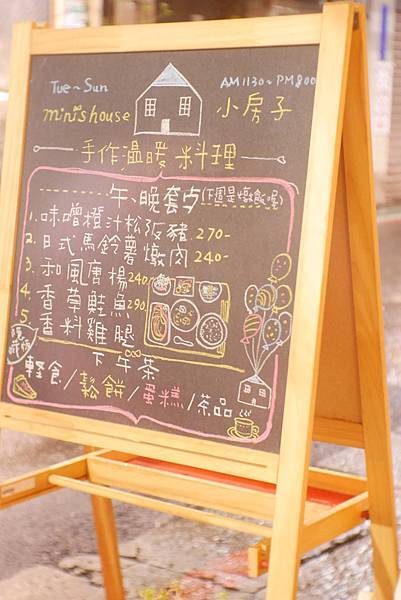 Tue~Sun
AM1130~PM800
mini's house
小房子
手作溫暖料理
午、晚套餐(下週是燉飯喔)
1. 味噌橙汁松阪豬 270-
2. 日式馬鈴薯燉肉 240-
3. 和風唐揚 240
4. 香草鮭魚 290
5 香料雞腿
下午茶
輕食/鬆餅/蛋糕/茶品